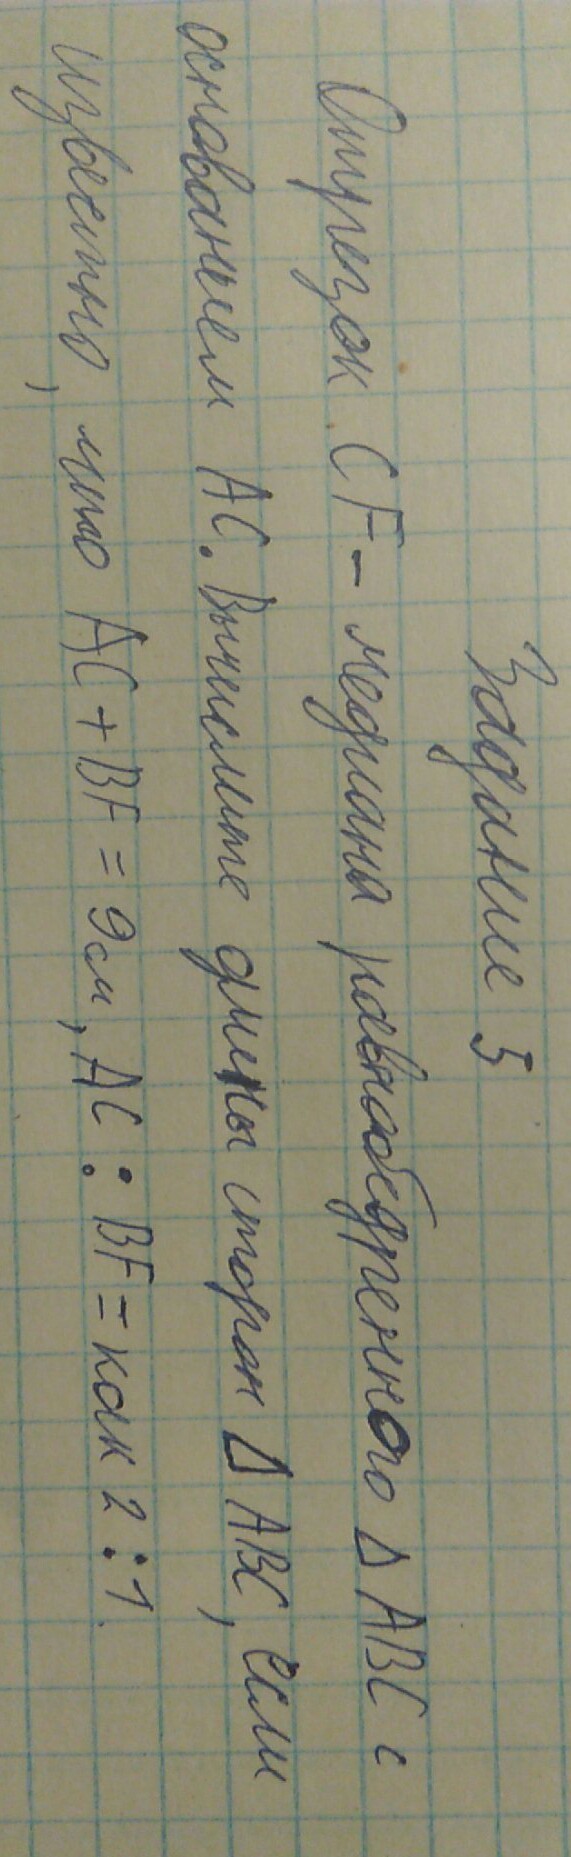 Задание 5
Отрезок CF - медиана равнобедренного Δ ABC с
основанием AC. Вычислите длины сторон Δ ABC, если
известно, что AC + BF = 9см, AC : BF = как 2 : 1.